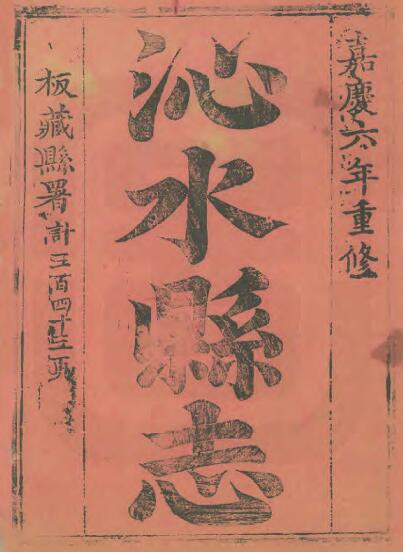 嘉慶六年重修
沁水縣志
板藏縣署計三百四十三頁